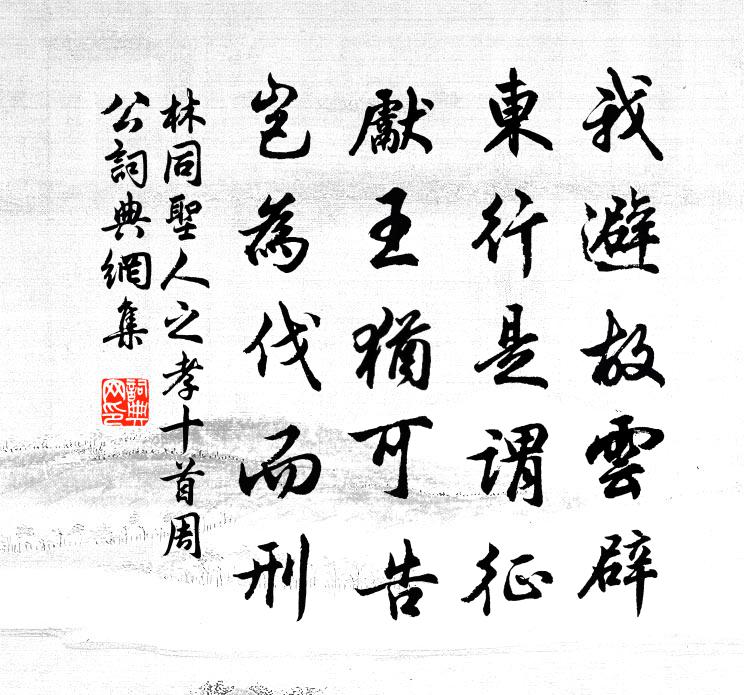 我避故雲辟
東行是謂征
獻王猶可告
豈為伐而刑
林同聖人之孝十首周
公詞典網集
詞典網印